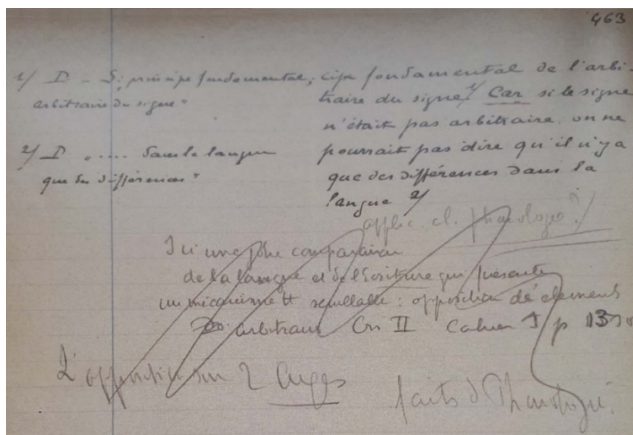 463
1/ D - S; principe fondamental;
arbitraire du signe"
2/ D ..... dans la langue
que des différences"
cipe fondamental de l'arbi-
traire du signe 1/ Car si le signe
n'était pas arbitraire, on ne
pourrait pas dire qu'il n'y a
que des différences dans la
langue 2/
applic. cl. phonologie?
Ici une jolie comparaison
de la langue et de l'écriture qui présente
un mécanisme tt semblable : opposition d'éléments
arbitraires Crs II Cahier 1 p 13
L'opposition sur 2
faits d Phonologie.